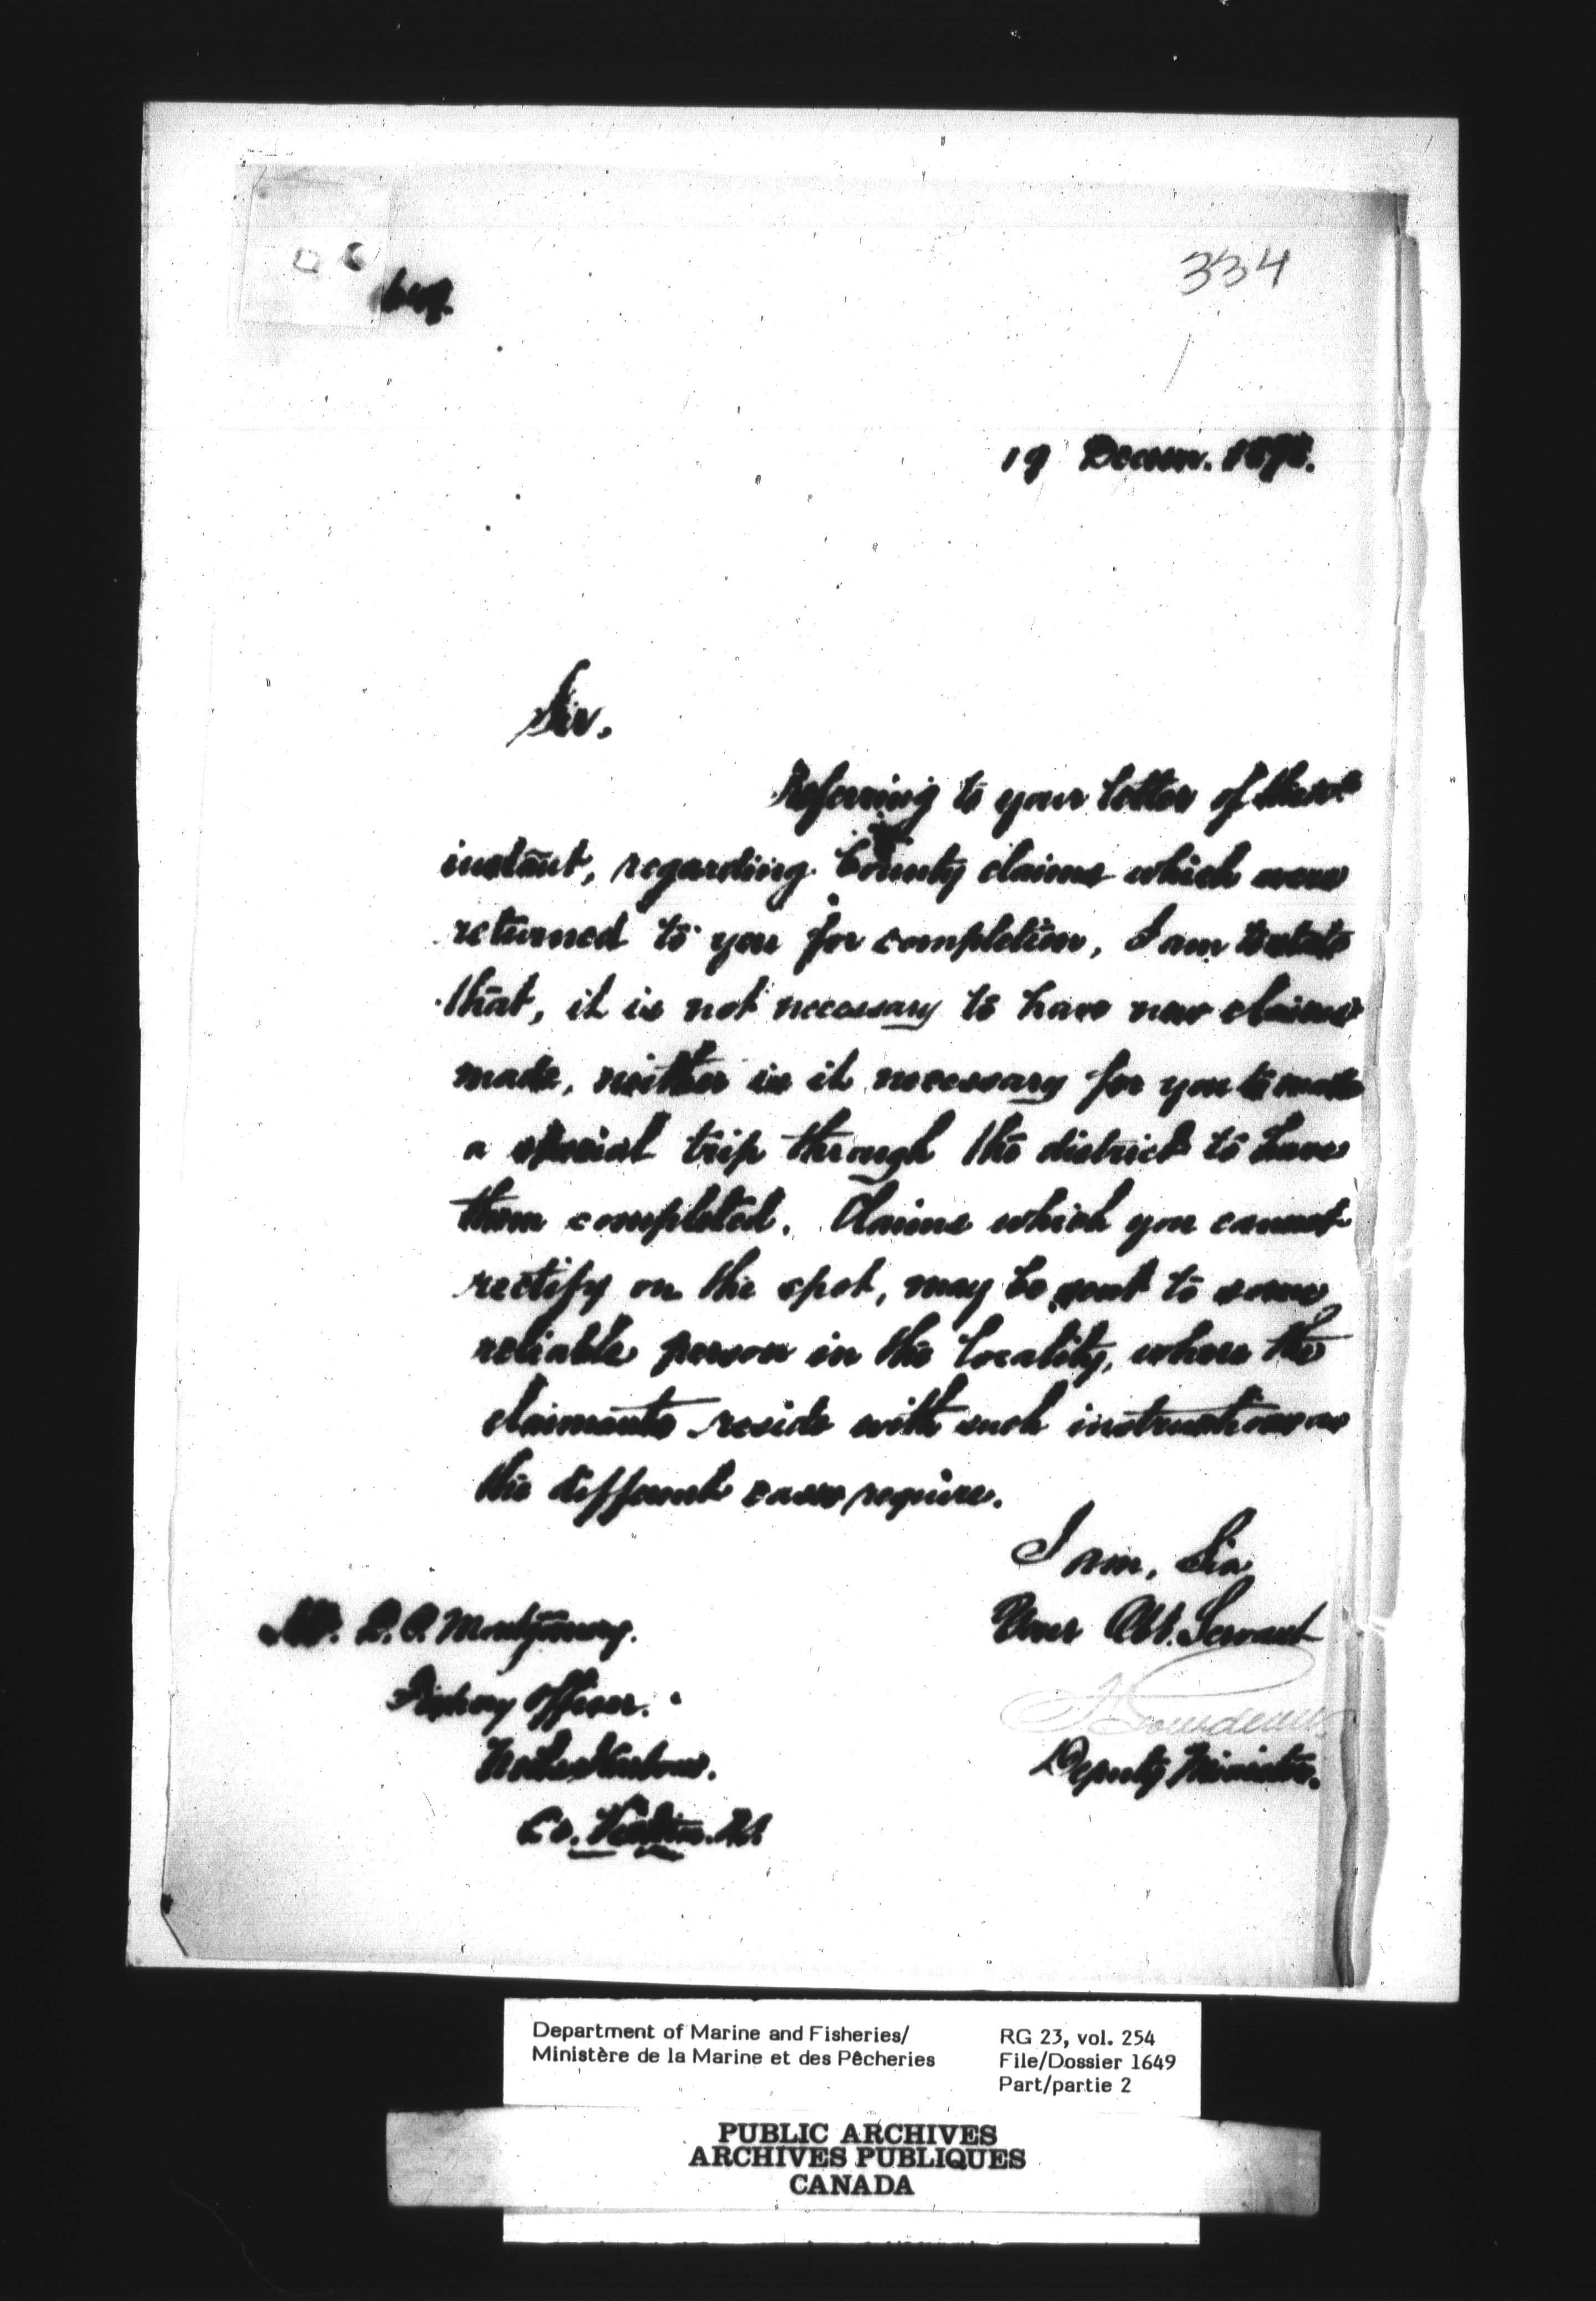 334
19 Decem. 189
Sir,
Referring to your letter of the
instant, regarding bounty claims which were
returned to you for completion, I am to state
that, it is not necessary to have new claims
made, neither is it necessary for you to make
a special trip through the district to have
them completed. Claims which you cannot
rectify on the spot, may be sent to some
reliable person in the locality, where the
claimants reside with such instructions as
the different cases require.
I am, Sir
Your Obt. Servant
Gourdeau
Deputy Minister.
Mr. Montgomery.
Fishery Officer.
Co.
Department of Marine and Fisheries/
Ministère de la Marine et des Pêcheries
RG 23, vol. 254
File/Dossier 1649
Part/partie 2
PUBLIC ARCHIVES
ARCHIVES PUBLIQUES
CANADA